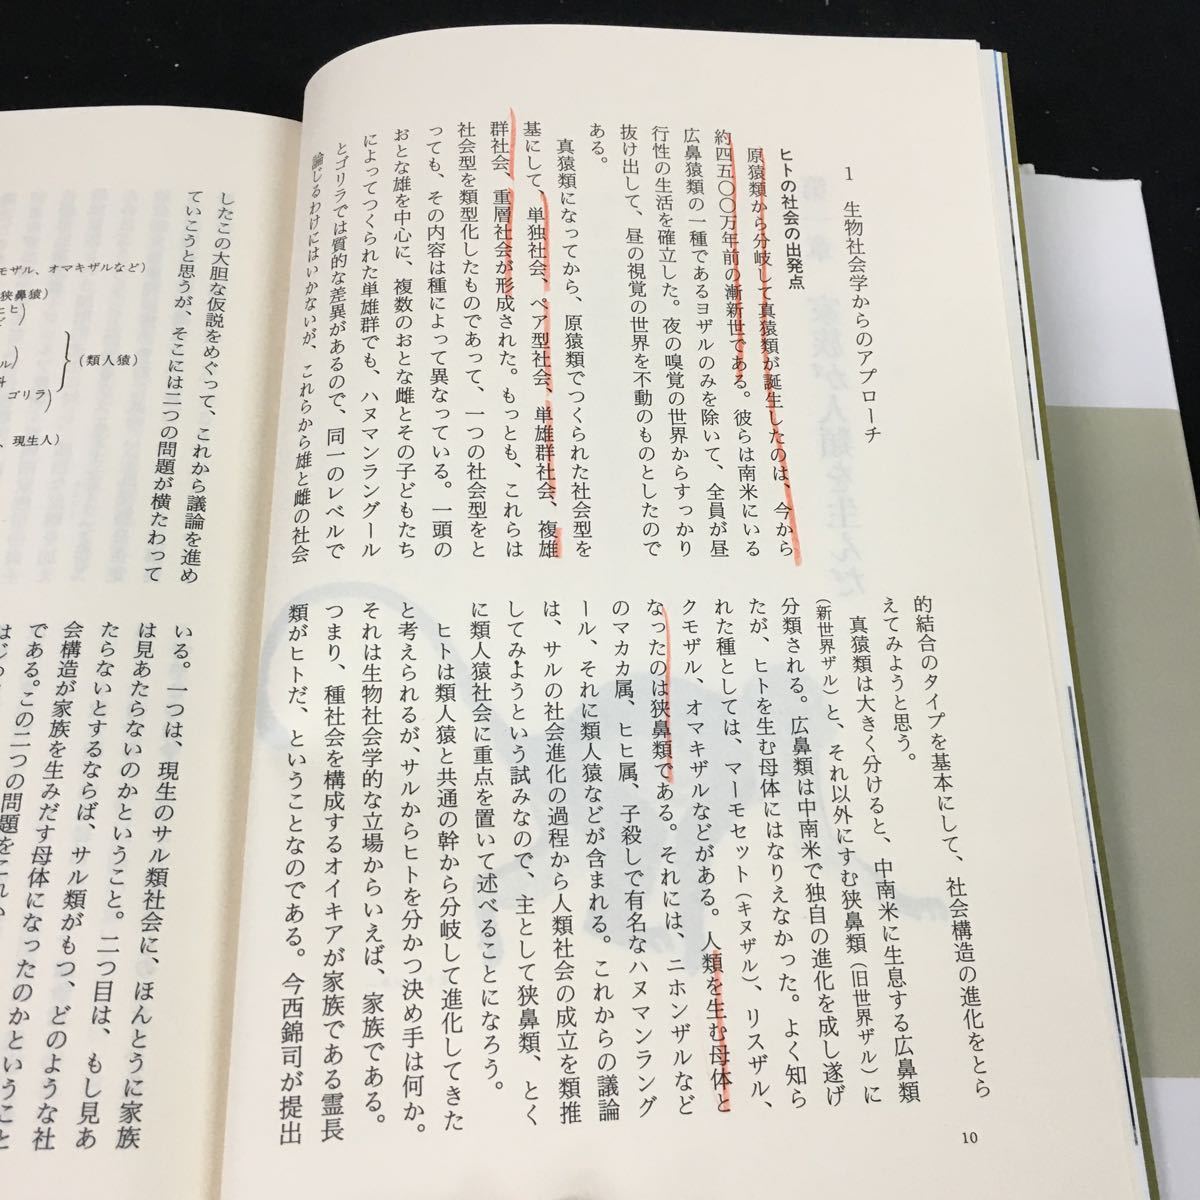 1　生物社会学からのアプローチ
ヒトの社会の出発点
原猿類から分岐して真猿類が誕生したのは、今から
約四五〇〇万年前の漸新世である。彼らは南米にいる
広鼻猿類の一種であるヨザルのみを除いて、全員が昼
行性の生活を確立した。夜の嗅覚の世界からすっかり
抜け出して、昼の視覚の世界を不動のものとしたので
ある。
真猿類になってから、原猿類でつくられた社会型を
基にして、単独社会、ペア型社会、単雄群社会、複雄
群社会、重層社会が形成された。もっとも、これらは
社会型を類型化したものであって、一つの社会型をと
っても、その内容は種によって異なっている。一頭の
おとな雄を中心に、複数のおとな雌とその子どもたち
によってつくられた単雄群でも、ハヌマンラングール
とゴリラでは質的な差異があるので、同一のレベルで
論じるわけにはいかないが、これらから雄と雌の社会
的結合のタイプを基本にして、社会構造の進化をとら
えてみようと思う。
真猿類は大きく分けると、中南米に生息する広鼻類
（新世界ザル）と、それ以外にすむ狭鼻類（旧世界ザル）に
分類される。広鼻類は中南米で独自の進化を成し遂げ
たが、ヒトを生む母体にはなりえなかった。よく知ら
れた種としては、マーモセット（キヌザル）、リスザル、
クモザル、オマキザルなどがある。人類を生む母体と
なったのは狭鼻類である。それには、ニホンザルなど
のマカカ属、ヒヒ属、子殺しで有名なハヌマンラング
ール、それに類人猿などが含まれる。これからの議論
は、サルの社会進化の過程から人類社会の成立を類推
してみようという試みなので、主として狭鼻類、とく
に類人猿社会に重点を置いて述べることになろう。
ヒトは類人猿と共通の幹から分岐して進化してきた
と考えられるが、サルからヒトを分かつ決め手は何か。
それは生物社会学的な立場からいえば、家族である。
つまり、種社会を構成するオイキアが家族である霊長
類がヒトだ、ということなのである。今西錦司が提出
10
モザル、オマキザルなど）
狭鼻猿）
ヒヒ
ゴリラ）
（類人猿）
、現生人）
したこの大胆な仮説をめぐって、これから議論を進め
ていこうと思うが、そこには二つの問題が横たわって
いる。一つは、現生のサル類社会に、ほんとうに家族
は見あたらないのかということ。二つ目は、もし見あ
たらないとするならば、サル類がもつ、どのような社
会構造が家族を生みだす母体になったのかということ
である。この二つの問題を